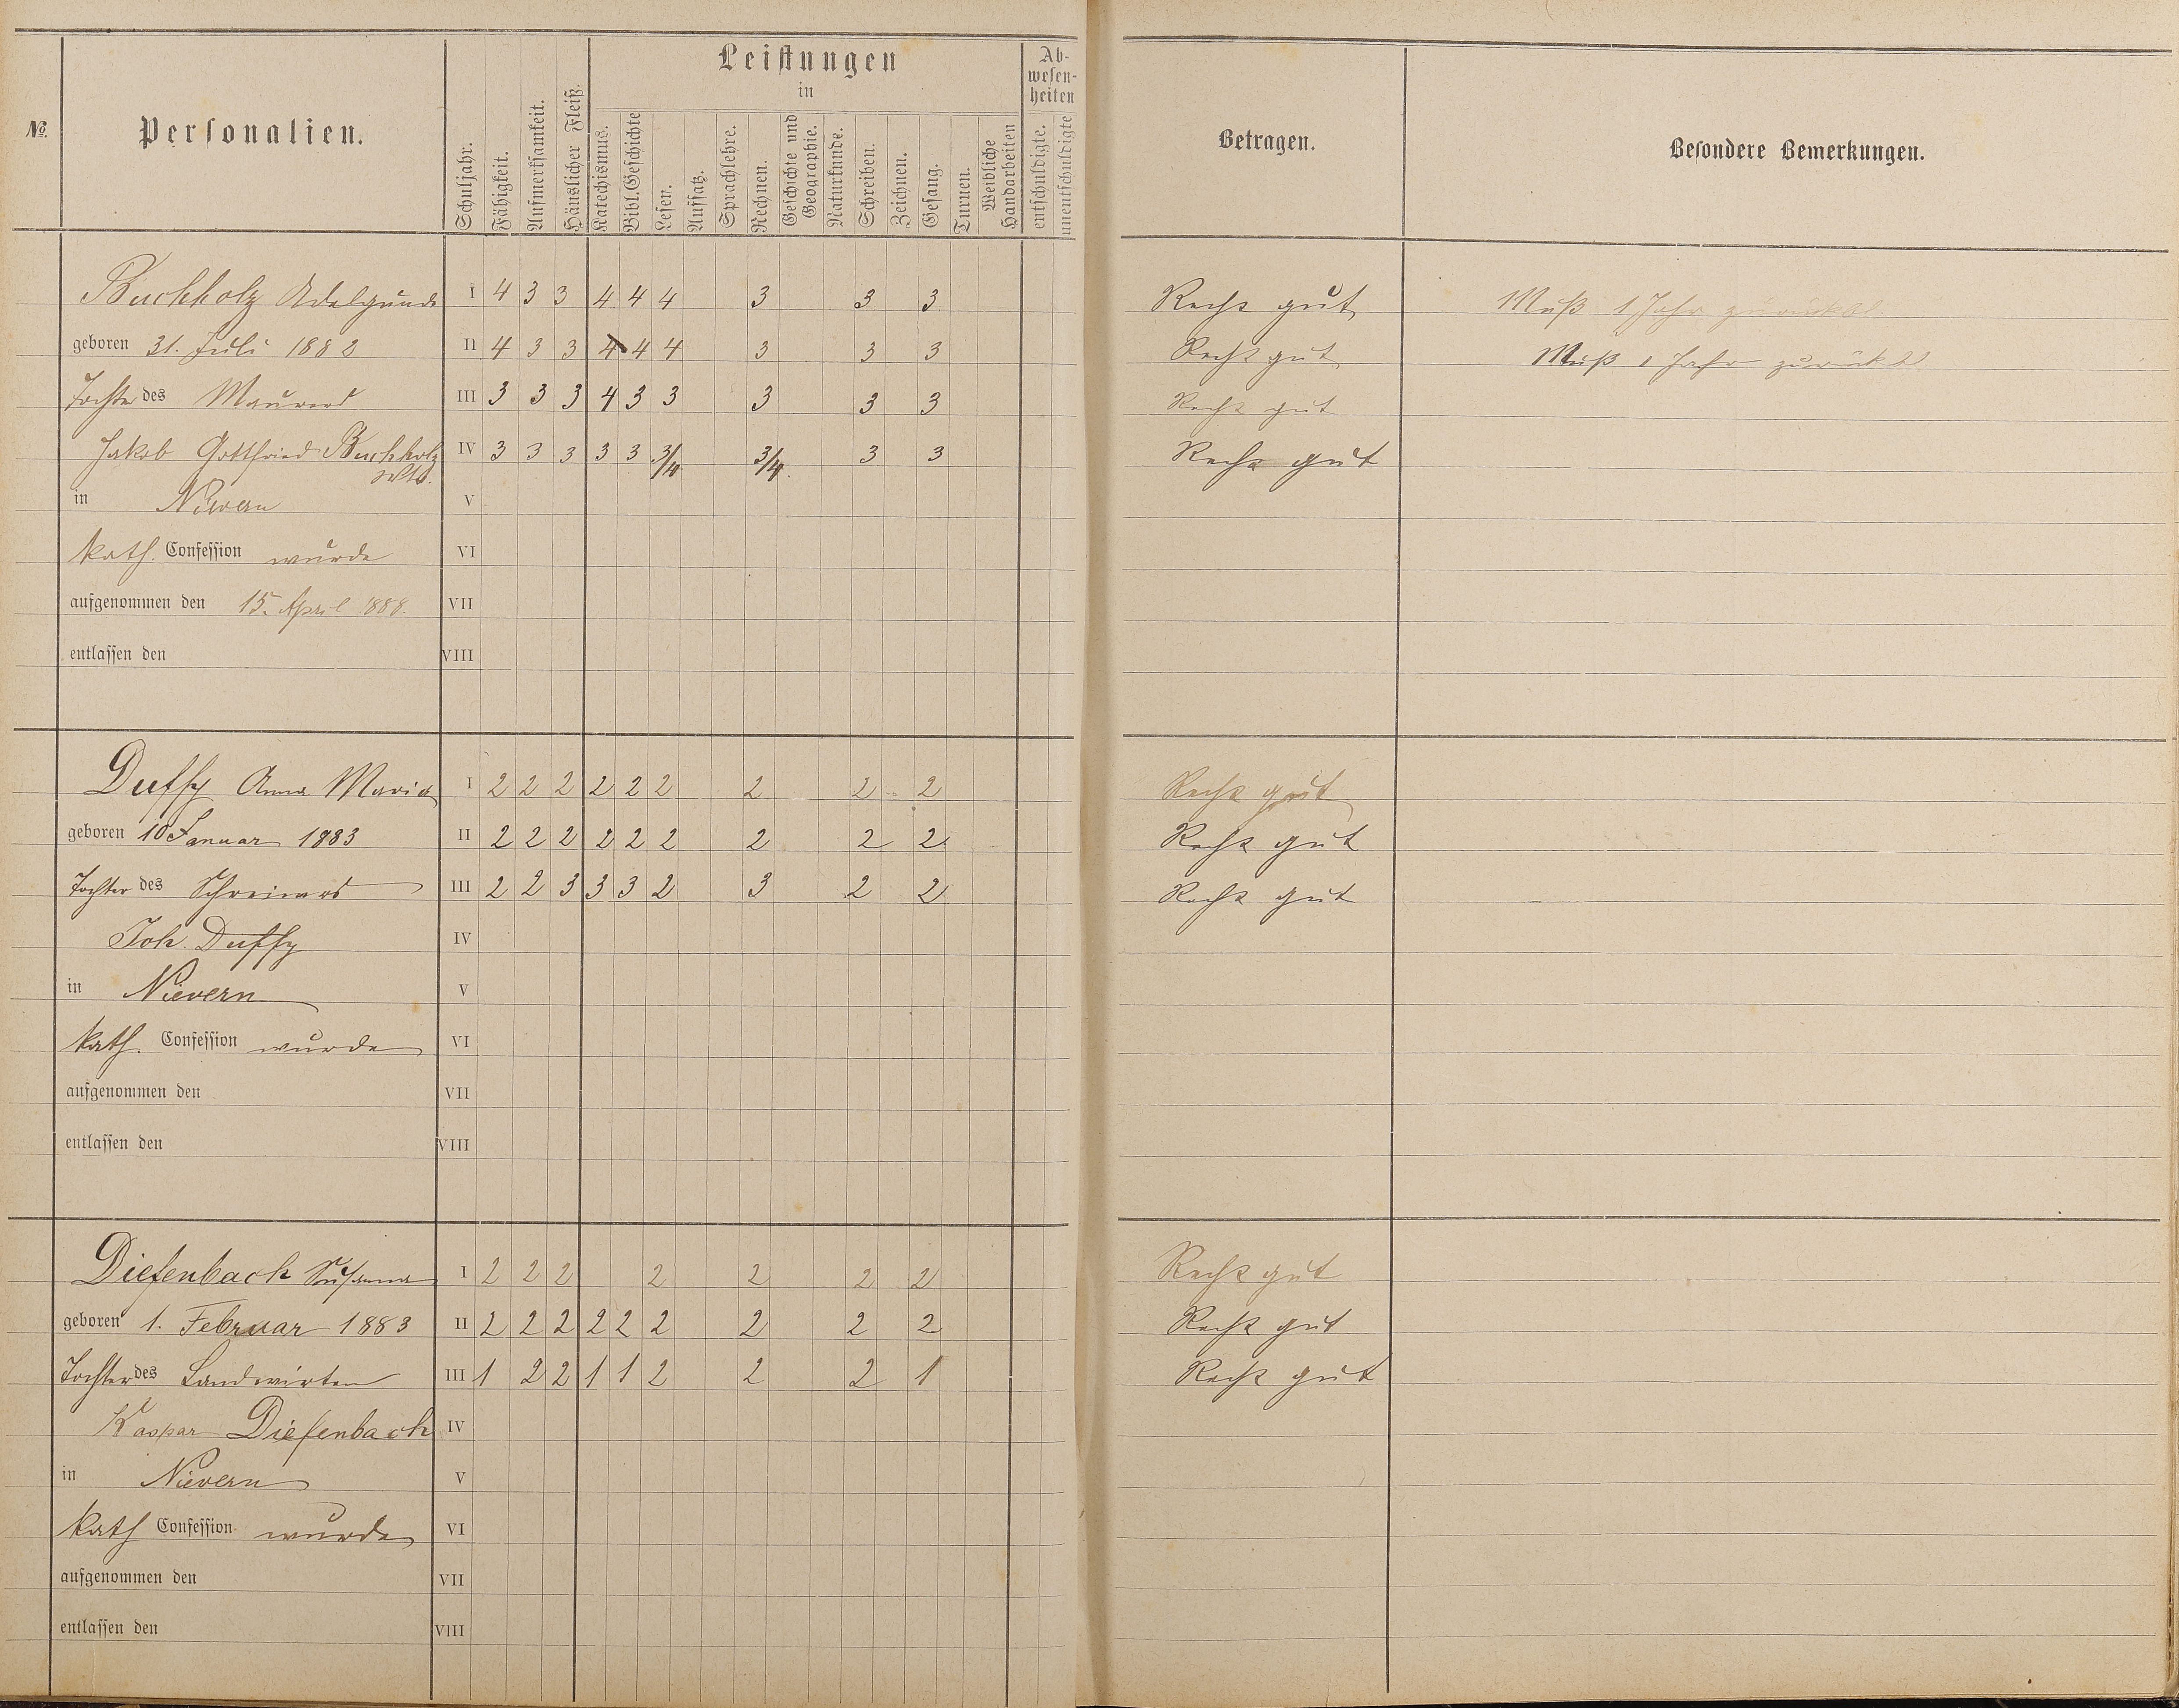 №.
Personalien.
Schuljahr.
Fähigkeit.
Aufmerksamkeit.
Häuslicher Fleiß.
Leistungen
in
Katechismus.
Bibl. Geschichte
Lesen.
Aufsatz.
Sprachlehre.
Rechnen.
Geschichte und
Geographie.
Naturkunde.
Schreiben.
Zeichnen.
Gesang.
Turnen.
Weibliche
Handarbeiten
Ab-
wesen-
heiten
entschuldigte.
unentschuldigte
Betragen.
Besondere Bemerkungen.
Buchholz Adelgunde I 4 3 3 4 4 4 3 3 3 Recht gut Muß 1 Jahr
geboren 31. Juli 1882 II 4 3 3 4 4 4 3 3 3 Recht gut Muß 1 Jahr
Tochter des Maurers III 3 3 3 4 3 3 3 3 3 Recht gut
Jakob Gottfried Buchholz IV 3 3 3 3 3 3/4 3/4. 3 3 Recht gut
in Nievern V
kath. Confession wurde VI
aufgenommen den 15. April 1888. VII
entlassen den VIII
Duffy Anna Maria I 2 2 2 2 2 2 2 2 2 Recht gut
geboren 10 Januar 1883 II 2 2 2 2 2 2 2 2 2 Recht gut
Tochter des Schreiners III 2 2 3 3 3 2 3 2 2 Recht gut
Joh. Duffy IV
in Nievern V
kath. Confession wurde VI
aufgenommen den VII
entlassen den VIII
Diefenbach Susanna I 2 2 2 2 2 2 2 Recht gut
geboren 1. Februar 1883 II 2 2 2 2 2 2 2 2 2 Recht gut
Tochter des Landwirten III 1 2 2 1 1 2 2 2 1 Recht gut
Kaspar Diefenbach IV
in Nievern V
kath Confession wurde VI
aufgenommen den VII
entlassen den VIII